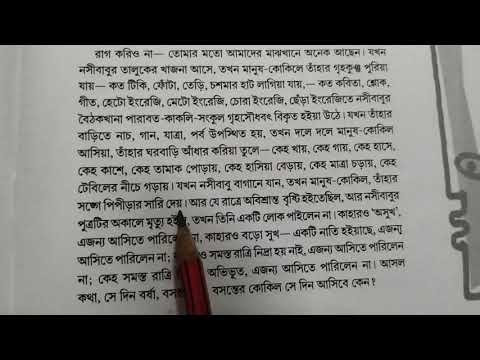 রাগ করিও না— তোমার মতো আমাদের মাঝখানে অনেক আছেন। যখন
নসীবাবুর তালুকের খাজনা আসে, তখন মানুষ-কোকিলে তাঁহার গৃহকুঞ্জ পুরিয়া
যায়— কত টিকি, ফোঁটা, তেড়ি, চশমার হাট লাগিয়া যায়,— কত কবিতা, শ্লোক,
গীত, হেটো ইংরেজি, মেটো ইংরেজি, চোরা ইংরেজি, ছেঁড়া ইংরেজিতে নসীবাবুর
বৈঠকখানা পারাবত-কাকলি-সংকুল গৃহসৌধবৎ বিকৃত হইয়া উঠে। যখন তাঁহার
বাড়িতে নাচ, গান, যাত্রা, পর্ব উপস্থিত হয়, তখন দলে দলে মানুষ-কোকিল
আসিয়া, তাঁহার ঘরবাড়ি আঁধার করিয়া তুলে— কেহ খায়, কেহ গায়, কেহ হাসে,
কেহ কাশে, কেহ তামাক পোড়ায়, কেহ হাসিয়া বেড়ায়, কেহ মাত্রা চড়ায়, কেহ
টেবিলের নীচে গড়ায়। যখন নসীবাবু বাগানে যান, তখন মানুষ-কোকিল, তাঁহার
সঙ্গে পিপীড়ার সারি দেয়। আর যে রাত্রে অবিশ্রান্ত বৃষ্টি হইতেছিল, আর নসীবাবুর
পুত্রটির অকালে মৃত্যু তখন তিনি একটি লোক পাইলেন না। কাহারও 'অসুখ',
এজন্য আসিতে পারিলেন না, কাহারও বড়ো সুখ— একটি নাতি হইয়াছে, এজন্য
আসিতে পারিলেন না; সমস্ত রাত্রি নিদ্রা হয় নাই, এজন্য আসিতে পারিলেন
না; কেহ সমস্ত রাত্রি অভিভূত, এজন্য আসিতে পারিলেন না। আসল
কথা, সে দিন বর্ষা, বসন্তের কোকিল সে দিন আসিবে কেন?